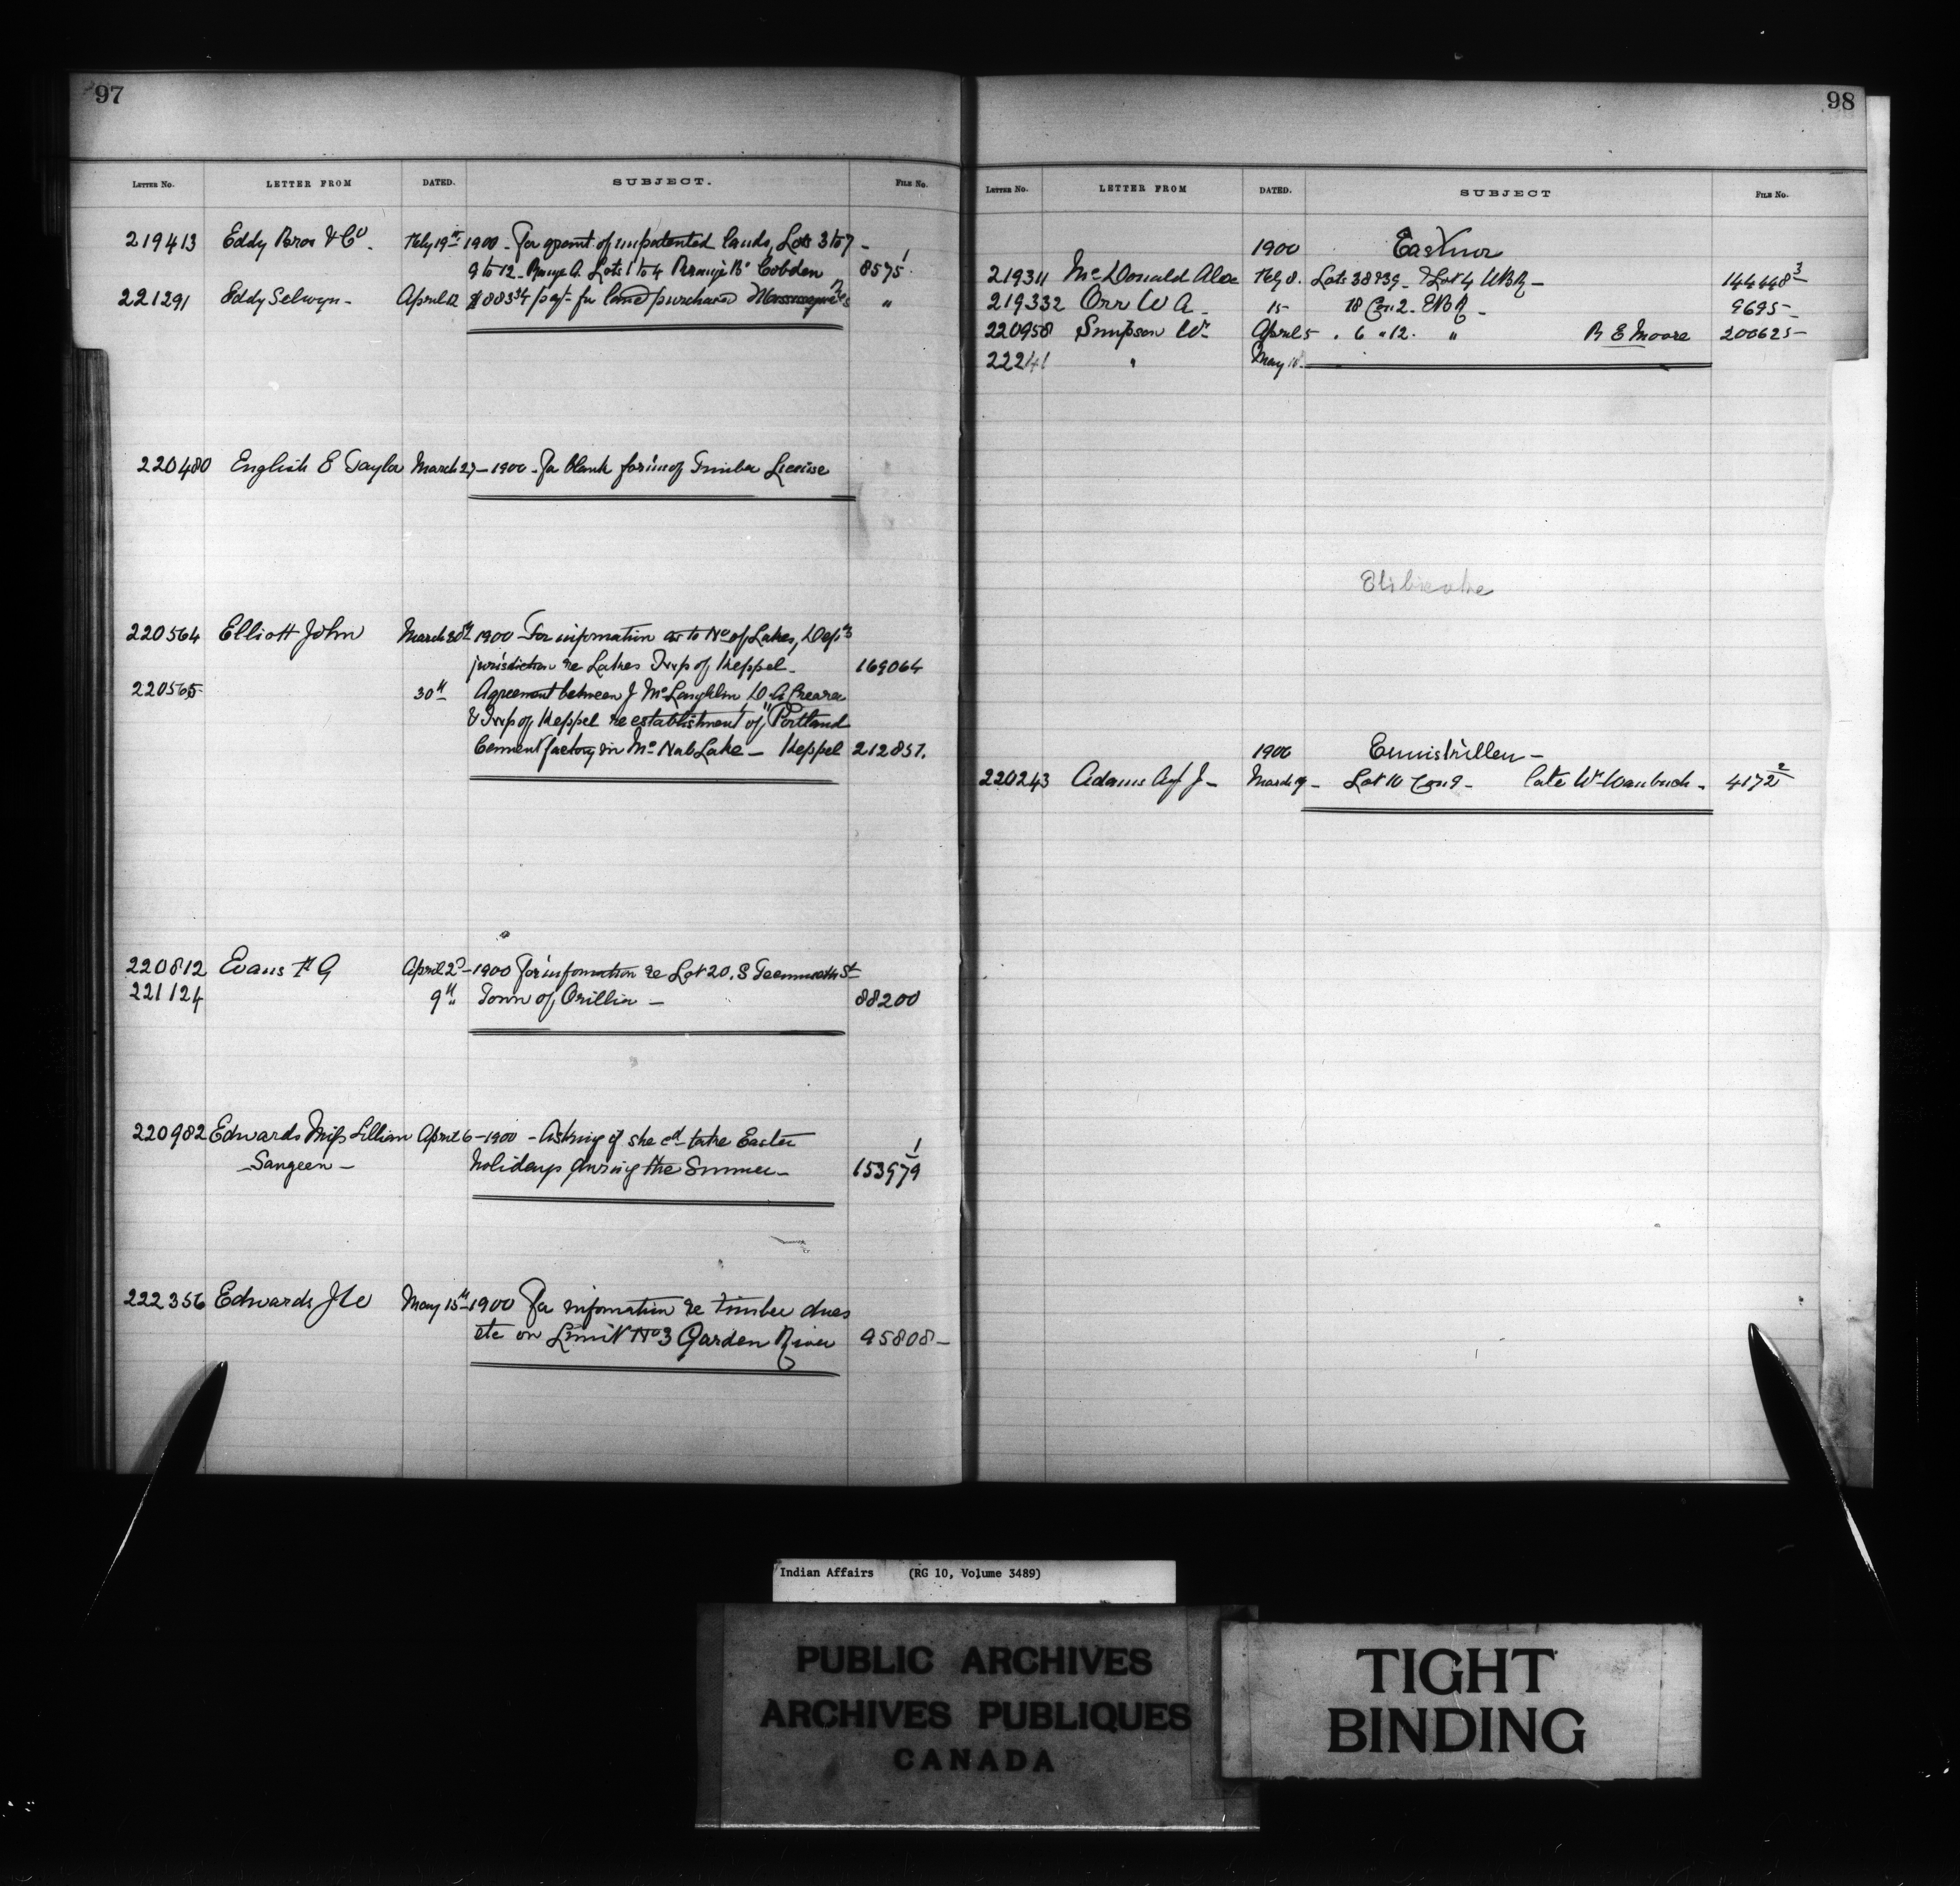 97
LETTER No. LETTER FROM DATED. SUBJECT. FILE No.
219413 Eddy Bros & Co. Feby 19th 1900 - For grant of unpatented lands, Lots 3 to 7 -
9 to 12 - Range A. Lots 1 to 4 Range B. Cobden 8575 1
221291 Eddy Selwyn - April 12 $883 34 pay't for land purchased "
220480 English E Taylor March 27 - 1900 - For blank form of Timber License
220564 Elliott John March 30th 1900 - For information as to No of Lakes, Dept's
jurisdiction re Lakes Twp of Keppel - 169064
220565 30th Agreement between J McLaughlin, D. A.
& Twp of Keppel re establishment of "Portland
Cement factory in McNab Lake - Keppel 212857.
220812 Evans F G April 2d - 1900 For information re Lot 20. S St
221124 9th Town of Orillia - 88200
220982 Edwards Miss Lillian April 6 - 1900 - Asking if she cd take Easter
Saugeen - holidays during the Summer - 153979 1
222356 Edwards J W May 15th 1900 For information re timber dues
etc on Limit No 3 Garden River 95808 -
98
LETTER No. LETTER FROM DATED. SUBJECT FILE No.
1900 Eastnor
219311 McDonald Alex Feby 8. Lots 38 & 39 - & Lot 4 WBR - 144448 3
219332 Orr W A - 15 18 Con 2 - EBR - 9695 -
220958 Simpson Wm April 5 . 6 " 12. " R E Moore 200625 -
22241 " May 10.
Etibicoke
1900 Enniskillen -
220243 Adams Agt J - March 19 - Lot 10 Con 9 - late Wm - 4172 2
Indian Affairs (RG 10, Volume 3489)
PUBLIC ARCHIVES
ARCHIVES PUBLIQUES
CANADA
TIGHT
BINDING